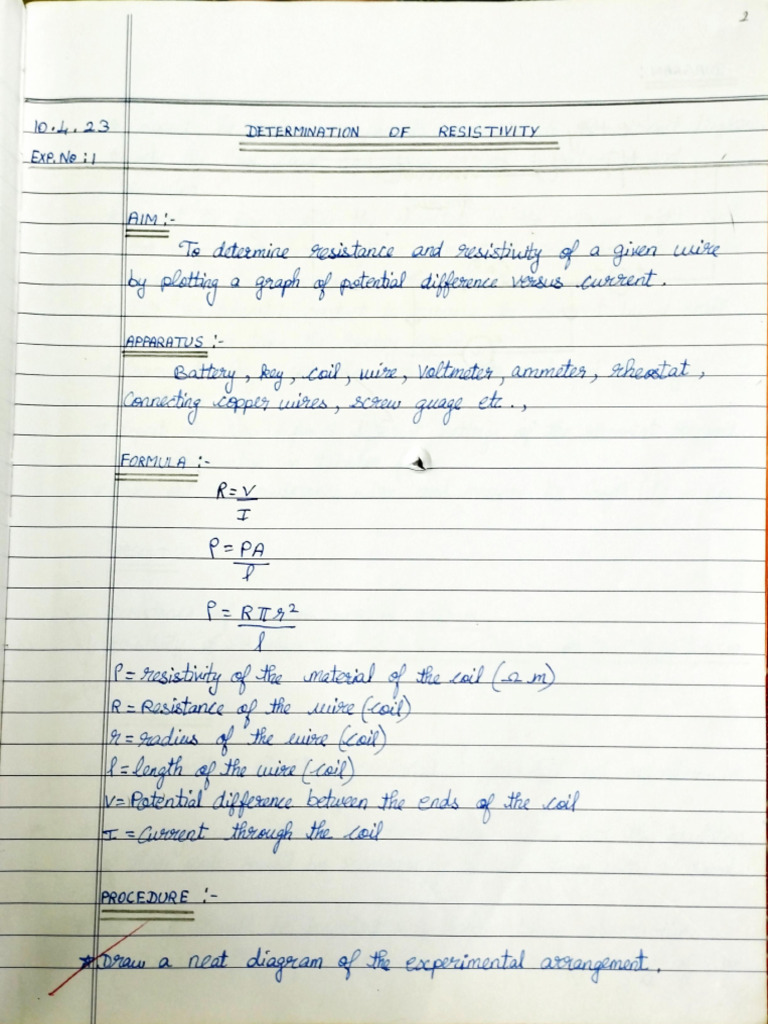 2
10.4.23
DETERMINATION OF RESISTIVITY
EXP.No : 1
AIM :-
To determine resistance and resistivity of a given wire
by plotting a graph of potential difference versus current.
APPARATUS :-
Battery, key, coil, wire, Voltmeter, ammeter, rheostat,
Connecting copper wires, screw guage etc.,
FORMULA :-
R = V
I
ρ = PA
l
ρ = Rπr²
l
ρ = resistivity of the material of the coil (Ω m)
R = Resistance of the wire (coil)
r = radius of the wire (coil)
l = length of the wire (coil)
V = Potential difference between the ends of the coil
I = Current through the coil
PROCEDURE :-
* Draw a neat diagram of the experimental arrangement.